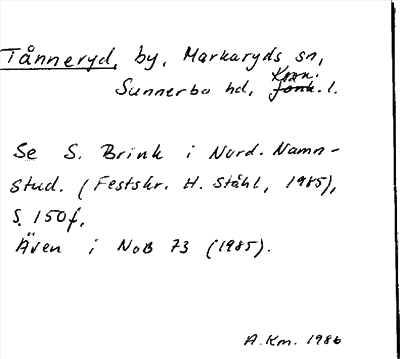 Tånneryd, by, Markaryds sn,
Sunnerbo hd, Jönk. Kron. l.
Se S. Brink i Nord. Namn-
stud. (Festskr. H. Ståhl, 1985),
S. 150f.
Även i NoB 73 (1985).
A.Km. 1986